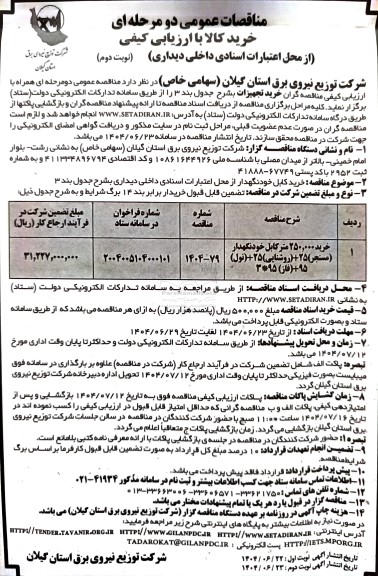 مناقصات عمومی دو مرحله ای
خرید کالا با ارزیابی کیفی
(از محل اعتبارات اسنادی داخلی دیداری)
(نوبت دوم)
شرکت توزیع نیروی برق
استان گیلان
شرکت توزیع نیروی برق استان گیلان (سهامی خاص) در نظر دارد مناقصه عمومی دومرحله ای همراه با
ارزیابی کیفی مناقصه گران خرید تجهیزات بشرح جدول بند ۳ را از طریق سامانه تدارکات الکترونیکی دولت (ستاد)
برگزار نماید. کلیه مراحل برگزاری مناقصه از دریافت اسناد مناقصه تا ارائه پیشنهاد مناقصه گران و بازگشایی پاکتها از
طریق درگاه سامانه تدارکات الکترونیکی دولت (ستاد) به آدرس: WWW.SETADIRAN.IR انجام خواهد شد و لازم است
مناقصه گران در صورت عدم عضویت قبلی، مراحل ثبت نام در سایت مذکور و دریافت گواهی امضای الکترونیکی را
جهت شرکت در مناقصه محقق سازند. تاریخ انتشار مناقصه در سامانه ۱۴۰۴/۰۶/۲۳ می باشد.
۱- نام و نشانی دستگاه مناقصه گزار: شرکت توزیع نیروی برق استان گیلان (سهامی خاص) به نشانی رشت- بلوار
امام خمینی- بالاتر از میدان مصلی با شناسه ملی ۱۰۸۶۱۶۴۴۹۲۶ و کد اقتصادی ۴۱۱۳۳۴۸۹۶۷۹۴ و به شماره
ثبت ۲۹۵۲ با کد پستی ۶۷۷۴۹-۴۱۸۸۸
۲- موضوع مناقصه: خرید کابل خودنگهدار از محل اعتبارات اسنادی داخلی دیداری بشرح جدول بند ۳
۳- نوع و مبلغ تضمین شرکت در مناقصه: تضمین قابل قبول خریدار برابر بند ۱۴ برگ شرایط و به شرح جدول ذیل:
ردیف
شرح مناقصه
شماره مناقصه
شماره فراخوان در سامانه ستاد
مبلغ تضمین شرکت در فرآیند ارجاع کار (ریال)
۱
خرید ۲۵۰,۰۰۰ متر کابل خودنگهدار
(مسنجر)۲۵+(روشنایی)۲۵+(نول)
۹۵+(فاز)۹۵*۳
۱۴۰۴-۷۹
۲۰۰۴۰۰۵۱۰۴۰۰۰۱۰۱
۳۱,۲۳۷,۰۰۰,۰۰۰
۴- محل دریافت اسناد مناقصه: از طریق مراجعه به سامانه تدارکات الکترونیکی دولت (ستاد)
به نشانی HTTP://WWW.SETADIRAN.IR
۵- قیمت خرید اسناد مناقصه: مبلغ ۵۰۰,۰۰۰ ریال (پانصد هزار ریال) به ازای هر مناقصه می باشد که از طریق سامانه
ستاد و بصورت الکترونیکی قابل پرداخت می باشد.
۶- مهلت دریافت اسناد: از تاریخ ۱۴۰۴/۰۶/۲۳ لغایت تاریخ ۱۴۰۴/۰۶/۲۹
۷- زمان و محل تحویل پیشنهادها: از طریق سامانه تدارکات الکترونیکی دولت و حداکثر تا پایان وقت اداری مورخ
۱۴۰۴/۰۷/۱۲ می باشد.
تبصره: پاکت الف شامل تضمین شرکت در فرآیند ارجاع کار (شرکت در مناقصه) علاوه بر بارگذاری در سامانه فوق
میبایست بصورت فیزیکی حداکثر تا پایان وقت اداری مورخ ۱۴۰۴/۰۷/۱۲ تحویل اداره دبیرخانه شرکت توزیع نیروی برق
استان گیلان گردد.
۸- زمان گشایش پاکات مناقصه: پاکات ارزیابی کیفی مناقصه فوق به تاریخ ۱۴۰۴/۰۷/۱۲ بازگشایی و پس از
امتیازدهی کیفی، پاکات الف و ب مناقصه گرانی که حداقل امتیاز قابل قبول در ارزیابی کیفی را کسب نموده اند در
تاریخ ۱۴۰۴/۰۷/۱۶ ساعت ۱۱:۰۰ صبح با حضور شرکت کنندگان در مناقصه در سالن جلسات شرکت توزیع نیروی
برق استان گیلان بازگشایی می گردد. زمان بازگشایی پاکات ج متعاقباً اعلام می گردد.
تبصره ۱: حضور شرکت کنندگان در مناقصه در جلسه ی بازگشایی پاکات با ارائه معرفی نامه کتبی بلامانع است.
۹- تضمین انجام تعهدات قرارداد: ۱۰ درصد مبلغ کل قرارداد به صورت تضمین قابل قبول کارفرما بر اساس برگ
شرایط مناقصه.
۱۰- پیش پرداخت قرارداد: قرارداد فاقد پیش پرداخت می باشد.
۱۱- اطلاعات تماس سامانه ستاد جهت کسب اطلاعات بیشتر و ثبت نام در سامانه مذکور ۴۱۹۳۴-۰۲۱
۱۲- شماره تلفن های تماس: ۳۳۶۲۱۷۵۰-۳۳۶۰۶۵۷۱-۳۳۶۶۳۰۰۶-۰۱۳
۱۳- مناقصه گزار در قبول یا رد هر یک یا تمام پیشنهادات مختار می باشد.
۱۴- هزینه چاپ آگهی در روزنامه بر عهده دستگاه مناقصه گزار (شرکت توزیع نیروی برق استان گیلان) می باشد.
در صورت نیاز به اطلاعات بیشتر به پایگاه های اینترنتی شرح زیر مراجعه فرمایید:
آدرس اینترنتی: HTTP://WWW.SETADIRAN.IR HTTP://WWW.GILANPDC.IR HTTP://TENDER.TAVANIR.ORG.IR
HTTP://IETS.MPORG.IR پست الکترونیکی: TADAROKAT@GILANPDC.IR
تاریخ انتشار آگهی نوبت اول: ۱۴۰۴/۰۶/۲۲
تاریخ انتشار آگهی نوبت دوم: ۱۴۰۴/۰۶/۲۳
شرکت توزیع نیروی برق استان گیلان